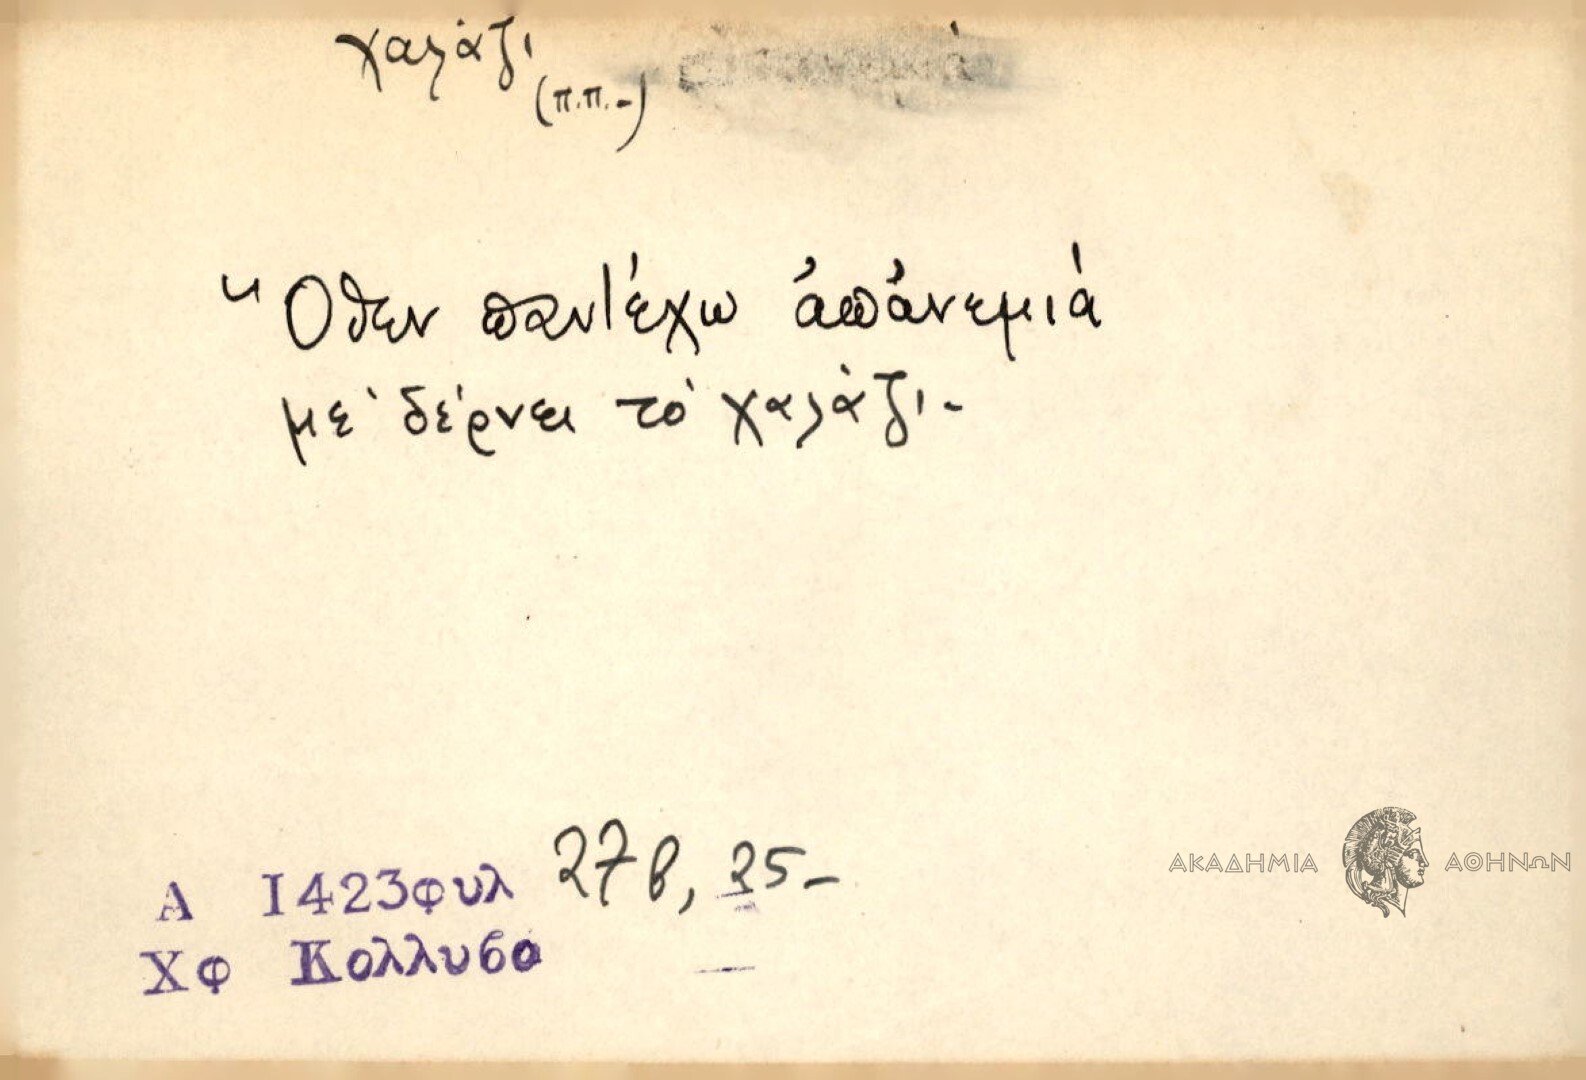 χαλάζι
(π.π.-)
Ὅθεν παντέχω ἀπ̓ἀνεμιά
μὲ δέρνει τὸ χαλάζι.-
Α 1423φυλ 27β, 25-
Χφ Κολλυβα
ΑΚΑΔΗΜΙΑ ΑΘΗΝΩΝ